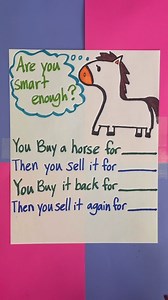 Are you
smart
enough?
You Buy a horse for
Then you sell it for
You Buy it back for
Then you sell it again for